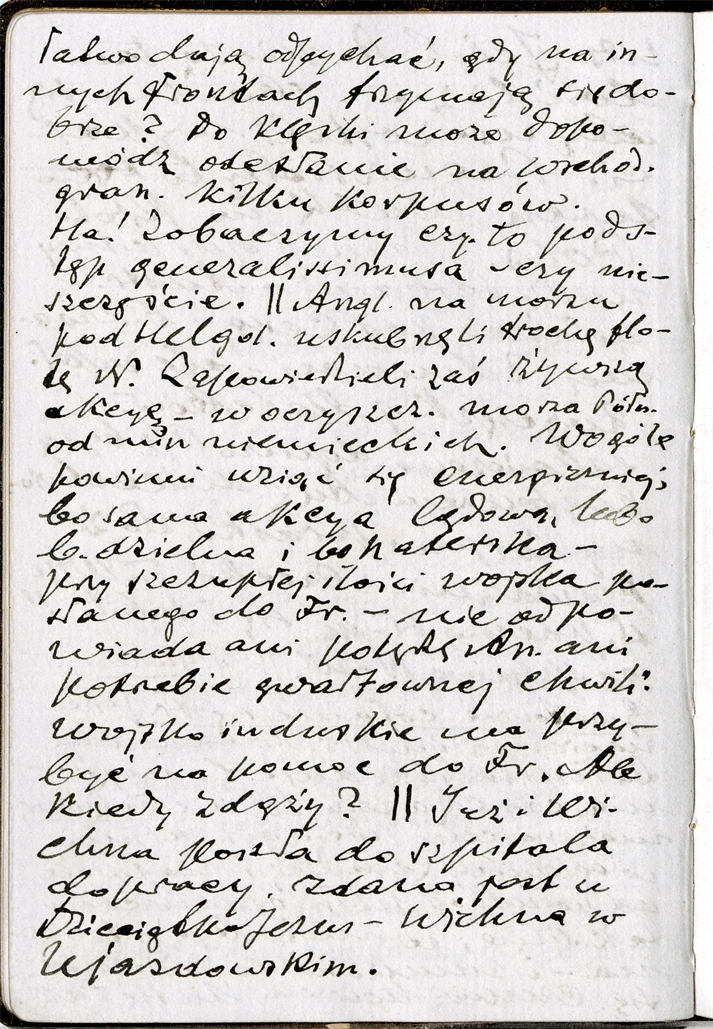 łatwo dają odpychać, gdy na in-
nych frontach trzymają się do-
brze? Do klęski może dopo-
módz odesłanie na wschod.
gran. kilku korpusów.
Ha! Zobaczymy czy to pods-
tęp generalissimusa – czy nie-
szczęście. || Angl. na morzu
pod Helgol. uskubnęli trochę flo-
tę N. Zapowiedzieli zaś żywszą
akcyę – w oczyszcz. morza Półn.
od min niemieckich. Wogóle
powinni wziąć się energiczniej,
bo sama akcya lądowa, choć
b. dzielna i bohaterska –
przy szczupłej ilości wojska po-
słanego do Fr. – nie odpo-
wiada ani potędze An. ani
potrzebie gwałtownej chwili.
Wojsko induskie ma przy-
być na pomoc do Fr. Ale
kiedy zdąży? || Już i Wi-
chna poszła do szpitala
do pracy. Zdana jest u
Dzieciątka Jezus – Wichna w
Ujazdowskim.